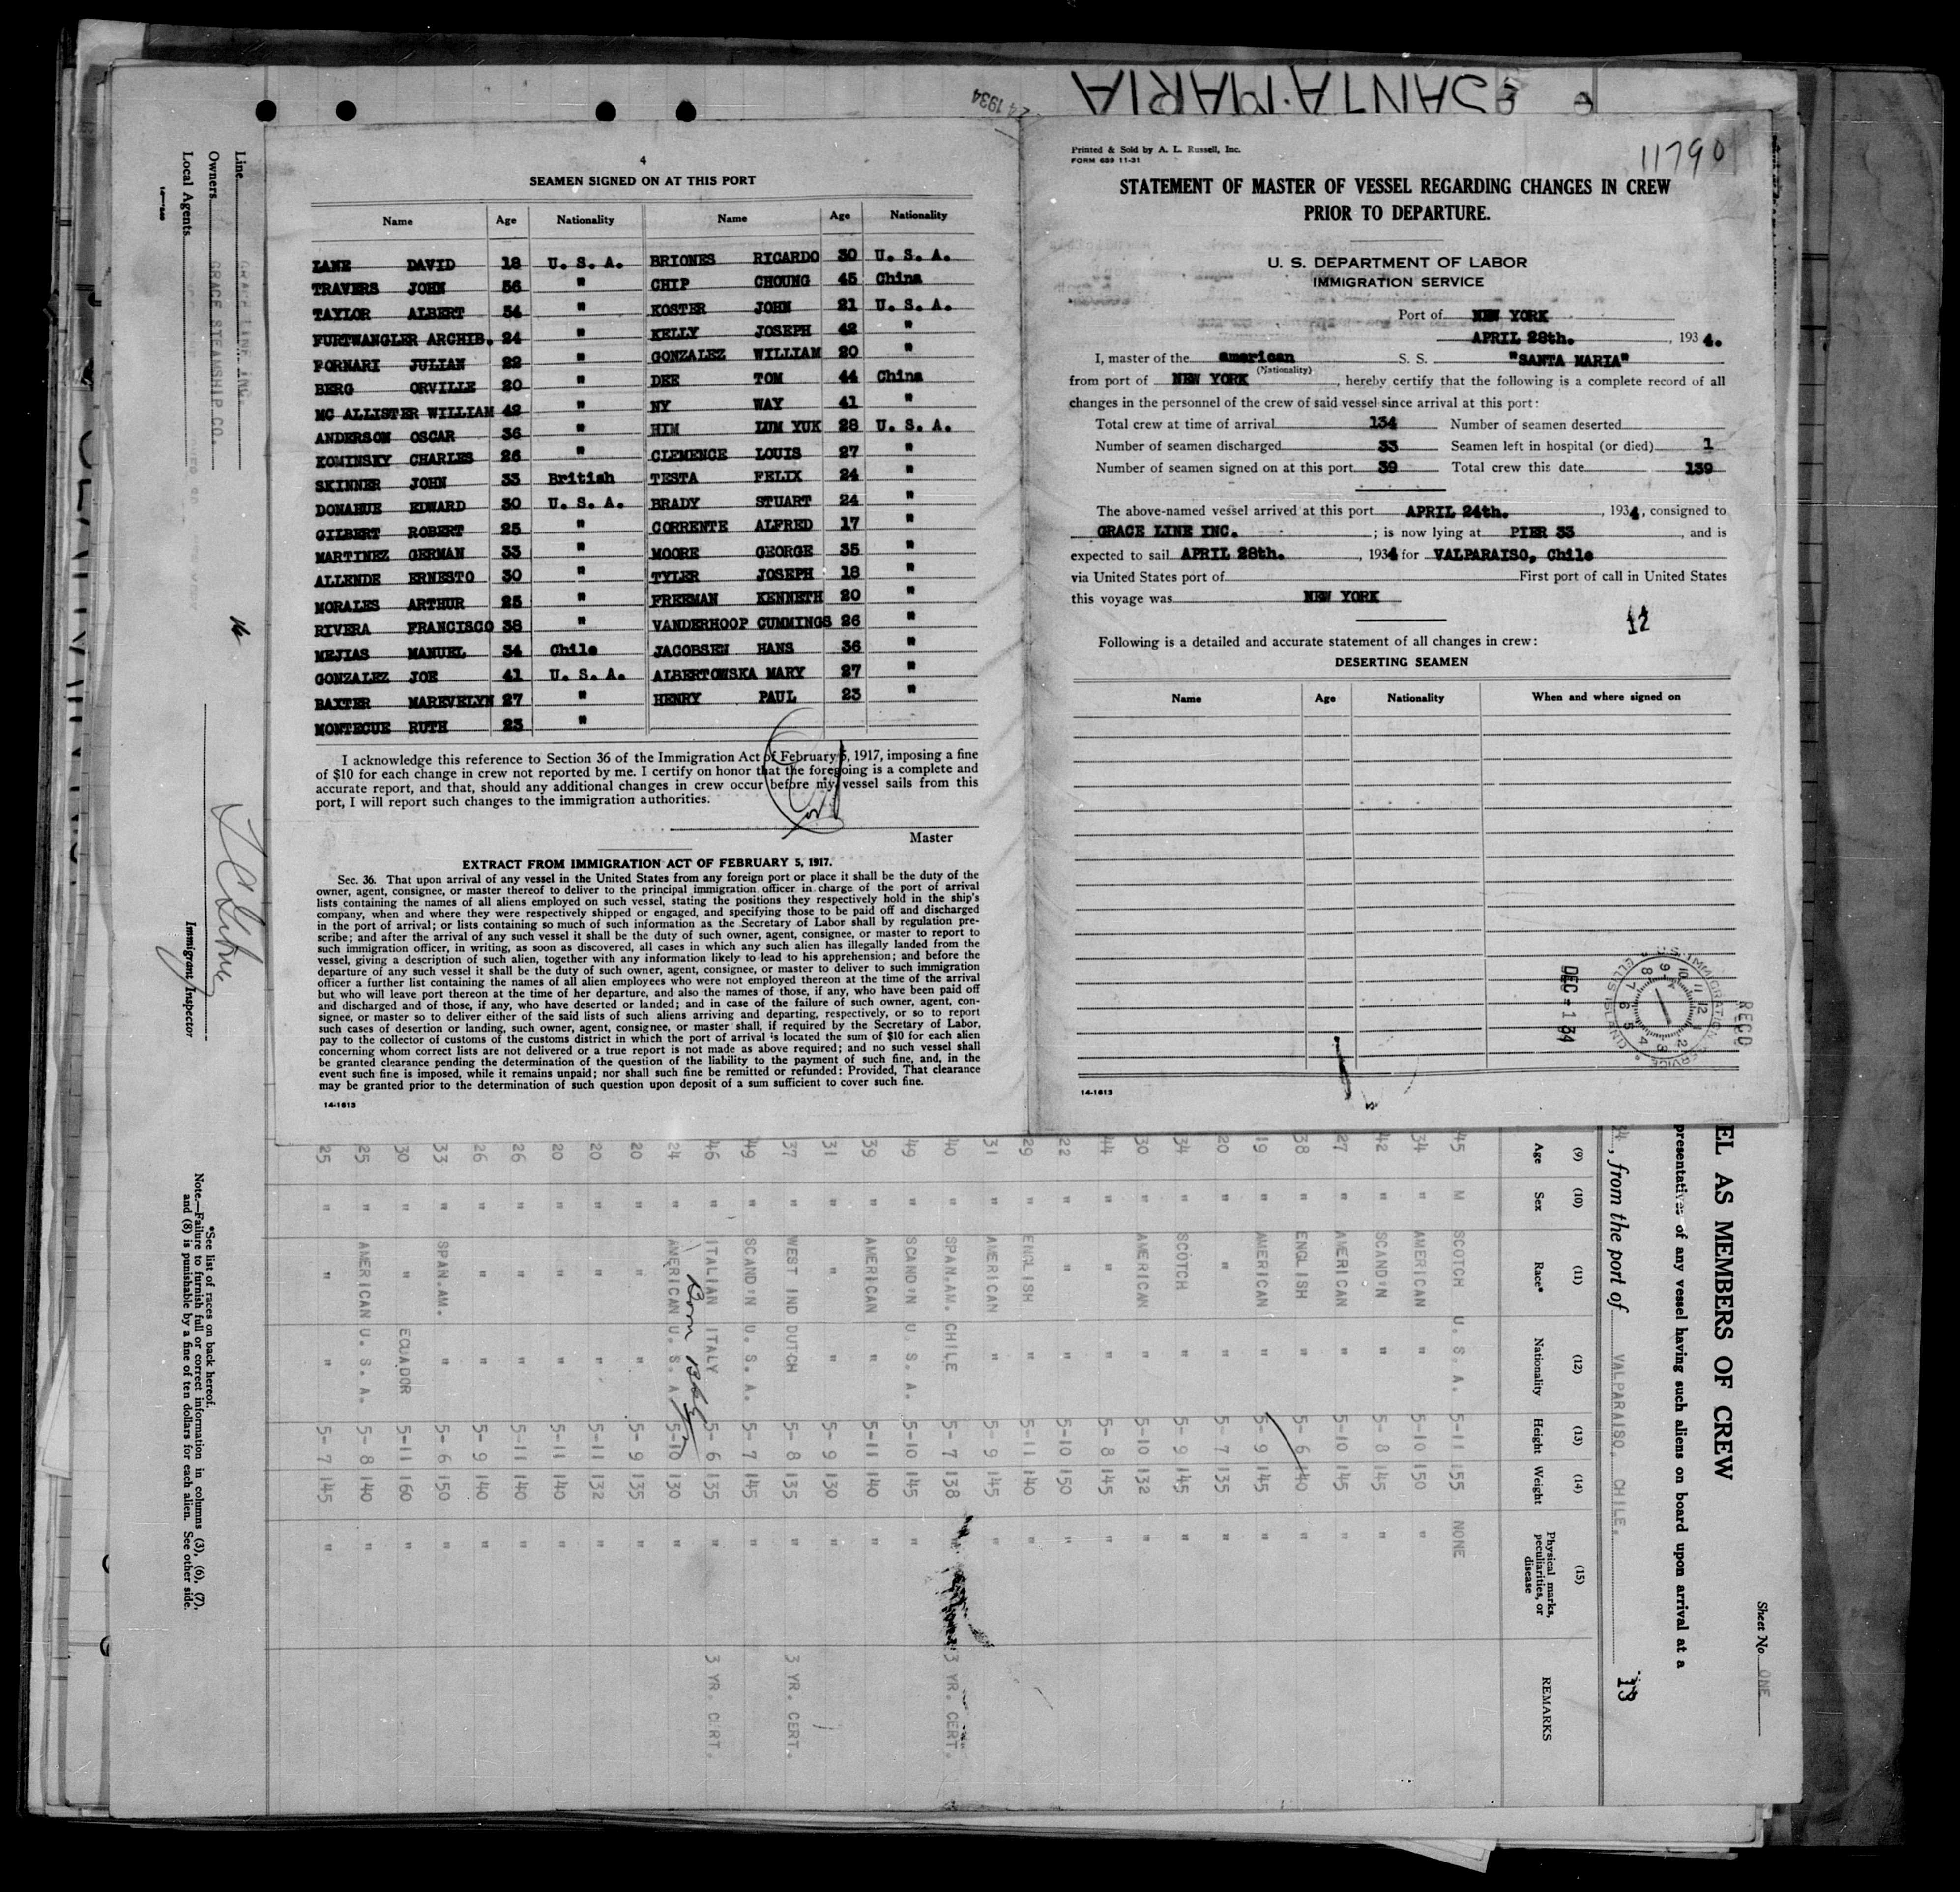 SANTA MARIA
24 1934
4
SEAMEN SIGNED ON AT THIS PORT
Name Age Nationality Name Age Nationality
LANE DAVID 18 U. S. A. BRIONES RICARDO 30 U. S. A.
TRAVERS JOHN 56 " CHIP CHOUNG 45 China
TAYLOR ALBERT 34 " KOSTER JOHN 21 U. S. A.
FURTWANGLER ARCHIB. 24 " KELLY JOSEPH 42 "
FORNARI JULIAN 22 " GONZALEZ WILLIAM 20 "
BERG ORVILLE 20 " DEE TOM 44 China
MC ALLISTER WILLIAM 42 " NY WAY 41 "
ANDERSON OSCAR 36 " HIM LUM YUK 28 U. S. A.
KOMINSKY CHARLES 26 " CLEMENCE LOUIS 27 "
SKINNER JOHN 33 British TESTA FELIX 24 "
DONAHUE EDWARD 30 U. S. A. BRADY STUART 24 "
GILBERT ROBERT 25 " CORRENTE ALFRED 17 "
MARTINEZ GERMAN 33 " MOORE GEORGE 35 "
ALLENDE ERNESTO 30 " TYLER JOSEPH 18 "
MORALES ARTHUR 25 " FREEMAN KENNETH 20 "
RIVERA FRANCISCO 38 " VANDERHOOP CUMMINGS 26 "
MEJIAS MANUEL 34 Chile JACOBSEN HANS 36 "
GONZALEZ JOE 41 U. S. A. ALBERTOWSKA MARY 27 "
BAXTER MAREVELYN 27 " HENRY PAUL 23 "
MONTECUE RUTH 23 "
I acknowledge this reference to Section 36 of the Immigration Act of February 5, 1917, imposing a fine
of $10 for each change in crew not reported by me. I certify on honor that the foregoing is a complete and
accurate report, and that, should any additional changes in crew occur before my vessel sails from this
port, I will report such changes to the immigration authorities.
Master
EXTRACT FROM IMMIGRATION ACT OF FEBRUARY 5, 1917.
Sec. 36. That upon arrival of any vessel in the United States from any foreign port or place it shall be the duty of the
owner, agent, consignee, or master thereof to deliver to the principal immigration officer in charge of the port of arrival
lists containing the names of all aliens employed on such vessel, stating the positions they respectively hold in the ship's
company, when and where they were respectively shipped or engaged, and specifying those to be paid off and discharged
in the port of arrival; or lists containing so much of such information as the Secretary of Labor shall by regulation pre-
scribe; and after the arrival of any such vessel it shall be the duty of such owner, agent, consignee, or master to report to
such immigration officer, in writing, as soon as discovered, all cases in which any such alien has illegally landed from the
vessel, giving a description of such alien, together with any information likely to lead to his apprehension; and before the
departure of any such vessel it shall be the duty of such owner, agent, consignee, or master to deliver to such immigration
officer a further list containing the names of all alien employees who were not employed thereon at the time of the arrival
but who will leave port thereon at the time of her departure, and also the names of those, if any, who have been paid off
and discharged and of those, if any, who have deserted or landed; and in case of the failure of such owner, agent, con-
signee, or master so to deliver either of the said lists of such aliens arriving and departing, respectively, or so to report
such cases of desertion or landing, such owner, agent, consignee, or master shall, if required by the Secretary of Labor,
pay to the collector of customs of the customs district in which the port of arrival is located the sum of $10 for each alien
concerning whom correct lists are not delivered or a true report is not made as above required; and no such vessel shall
be granted clearance pending the determination of the question of the liability to the payment of such fine, and, in the
event such fine is imposed, while it remains unpaid; nor shall such fine be remitted or refunded: Provided, That clearance
may be granted prior to the determination of such question upon deposit of a sum sufficient to cover such fine.
14-1613
Printed & Sold by A. L. Russell, Inc.
FORM 689 11-31
11790
STATEMENT OF MASTER OF VESSEL REGARDING CHANGES IN CREW
PRIOR TO DEPARTURE.
U. S. DEPARTMENT OF LABOR
IMMIGRATION SERVICE
Port of NEW YORK
APRIL 28th. , 1934.
I, master of the american S. S. "SANTA MARIA"
(Nationality)
from port of NEW YORK , hereby certify that the following is a complete record of all
changes in the personnel of the crew of said vessel since arrival at this port:
Total crew at time of arrival 134 Number of seamen deserted
Number of seamen discharged 33 Seamen left in hospital (or died) 1
Number of seamen signed on at this port 39 Total crew this date 139
The above-named vessel arrived at this port APRIL 24th. , 1934, consigned to
GRACE LINE INC. ; is now lying at PIER 33 , and is
expected to sail APRIL 28th. , 1934 for VALPARAISO, Chile
via United States port of First port of call in United States
this voyage was NEW YORK
12
Following is a detailed and accurate statement of all changes in crew:
DESERTING SEAMEN
Name Age Nationality When and where signed on
REC'D
U.S. IMMIGRATION SERVICE ELLIS ISLAND
DEC - 1 34
14-1613
Sheet No. ONE
EL AS MEMBERS OF CREW
presentatives of any vessel having such aliens on board upon arrival at a
34, from the port of VALPARAISO. CHILE.
13
(9) (10) (11) (12) (13) (14) (15)
Age Sex Race* Nationality Height Weight Physical marks, peculiarities, or disease REMARKS
45 M SCOTCH U. S. A. 5-11 155 NONE
34 " AMERICAN " 5-10 150 "
42 " SCAND'N " 5- 8 145 "
27 " AMERICAN " 5-10 145 "
38 " ENGLISH " 5- 6 140 "
19 " AMERICAN " 5- 9 145 "
20 " " " 5- 7 135 "
34 " SCOTCH " 5- 9 145 "
30 " AMERICAN " 5-10 132 "
44 " " " 5- 8 145 "
22 " " " 5-10 150 "
29 " ENGLISH " 5-11 140 "
31 " AMERICAN " 5- 9 145 "
40 " SPAN.AM. CHILE 5- 7 138 " 3 YR. CERT.
49 " SCAND'N U. S. A. 5-10 145 "
39 " AMERICAN " 5-11 140 "
31 " " " 5- 9 130 "
37 " WEST IND DUTCH 5- 8 135 " 3 YR. CERT.
49 " SCAND'N U. S. A. 5- 7 145 "
46 " ITALIAN ITALY 5- 6 135 " 3 YR. CERT.
Born
24 " AMERICAN U. S. A. 5-10 130 "
20 " " " 5- 9 135 "
20 " " " 5-11 132 "
20 " " " 5-11 140 "
26 " " " 5-11 140 "
26 " " " 5- 9 140 "
33 " SPAN.AM. " 5- 6 150 "
30 " " ECUADOR 5-11 160 "
25 " AMERICAN U. S. A. 5- 8 140 "
25 " " " 5- 7 145 "
Line GRACE LINE INC.
Owners GRACE STEAMSHIP CO.
Local Agents
Immigrant Inspector
*See list of races on back hereof.
Note.—Failure to furnish full or correct information in columns (3), (6), (7),
and (8) is punishable by a fine of ten dollars for each alien. See other side.